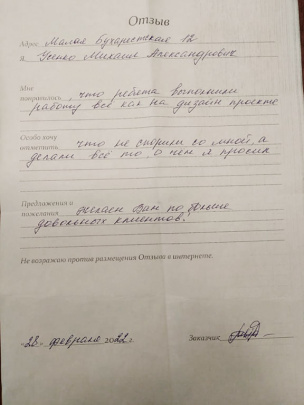 Отзыв
Адрес Малая Бухарестская 12
я Усенко Михаил Александрович
Мне
понравилось, что ребята выполнили
работу всё как на дизайн проекте
Особо хочу
отметить что не спорили со мной, а
делали всё то, о чем я просил
Предложения и
пожелания Желаем Вам по больше
довольных клиентов!
Не возражаю против размещения Отзыва в интернете.
«28» февраля 2022 г. Заказчик